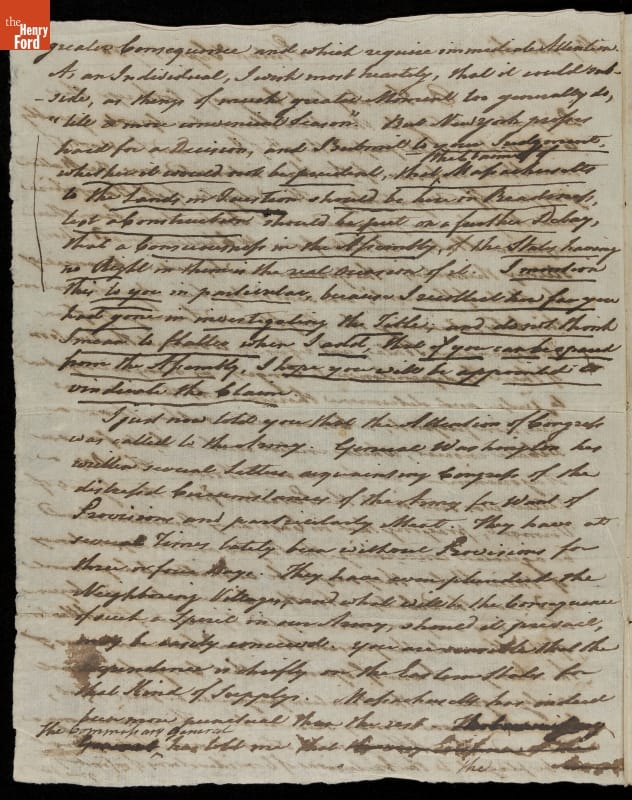 the
Henry
Ford
greater Consequence and which require immediate Attention.
As an Individual, I wish most heartily, that it could sub-
side, as things of much greater Moment too generally do,
"till a more convenient Season". But New York presses
hard for a Decision, and I submit to your Judgement,
whether it would not be prudent, that the Claim of Massachusetts
to the Lands in Question should be here in Readiness,
lest a Construction should be put on a further Delay,
that a Consciousness in the Assembly, of the State having
no Right in them is the real occasion of it. I mention
this to you in particular, because I recollect how far you
had gone in investigating the Title, and do not think
I mean to flatter when I add, that if you can be spared
from the Assembly, I hope you will be appointed to
vindicate the Claim.
I just now told you that the Attention of Congress
was called to the Army. General Washington has
written several Letters acquainting Congress of the
distressd Circumstances of the Army for Want of
Provisions and particularly Meat. They have at
several Times lately been without Provisions for
three or four Days. They have even plunderd the
Neighboring Villages, and what will be the Consequence
of such a Spirit in our Army, should it prevail,
may be easily conceivd. You are sensible that the
dependence is chiefly on the Eastern States for
that Kind of Supplys. Massachusetts has indeed
been more punctual than the rest.
The Commissary General
has told me that
the